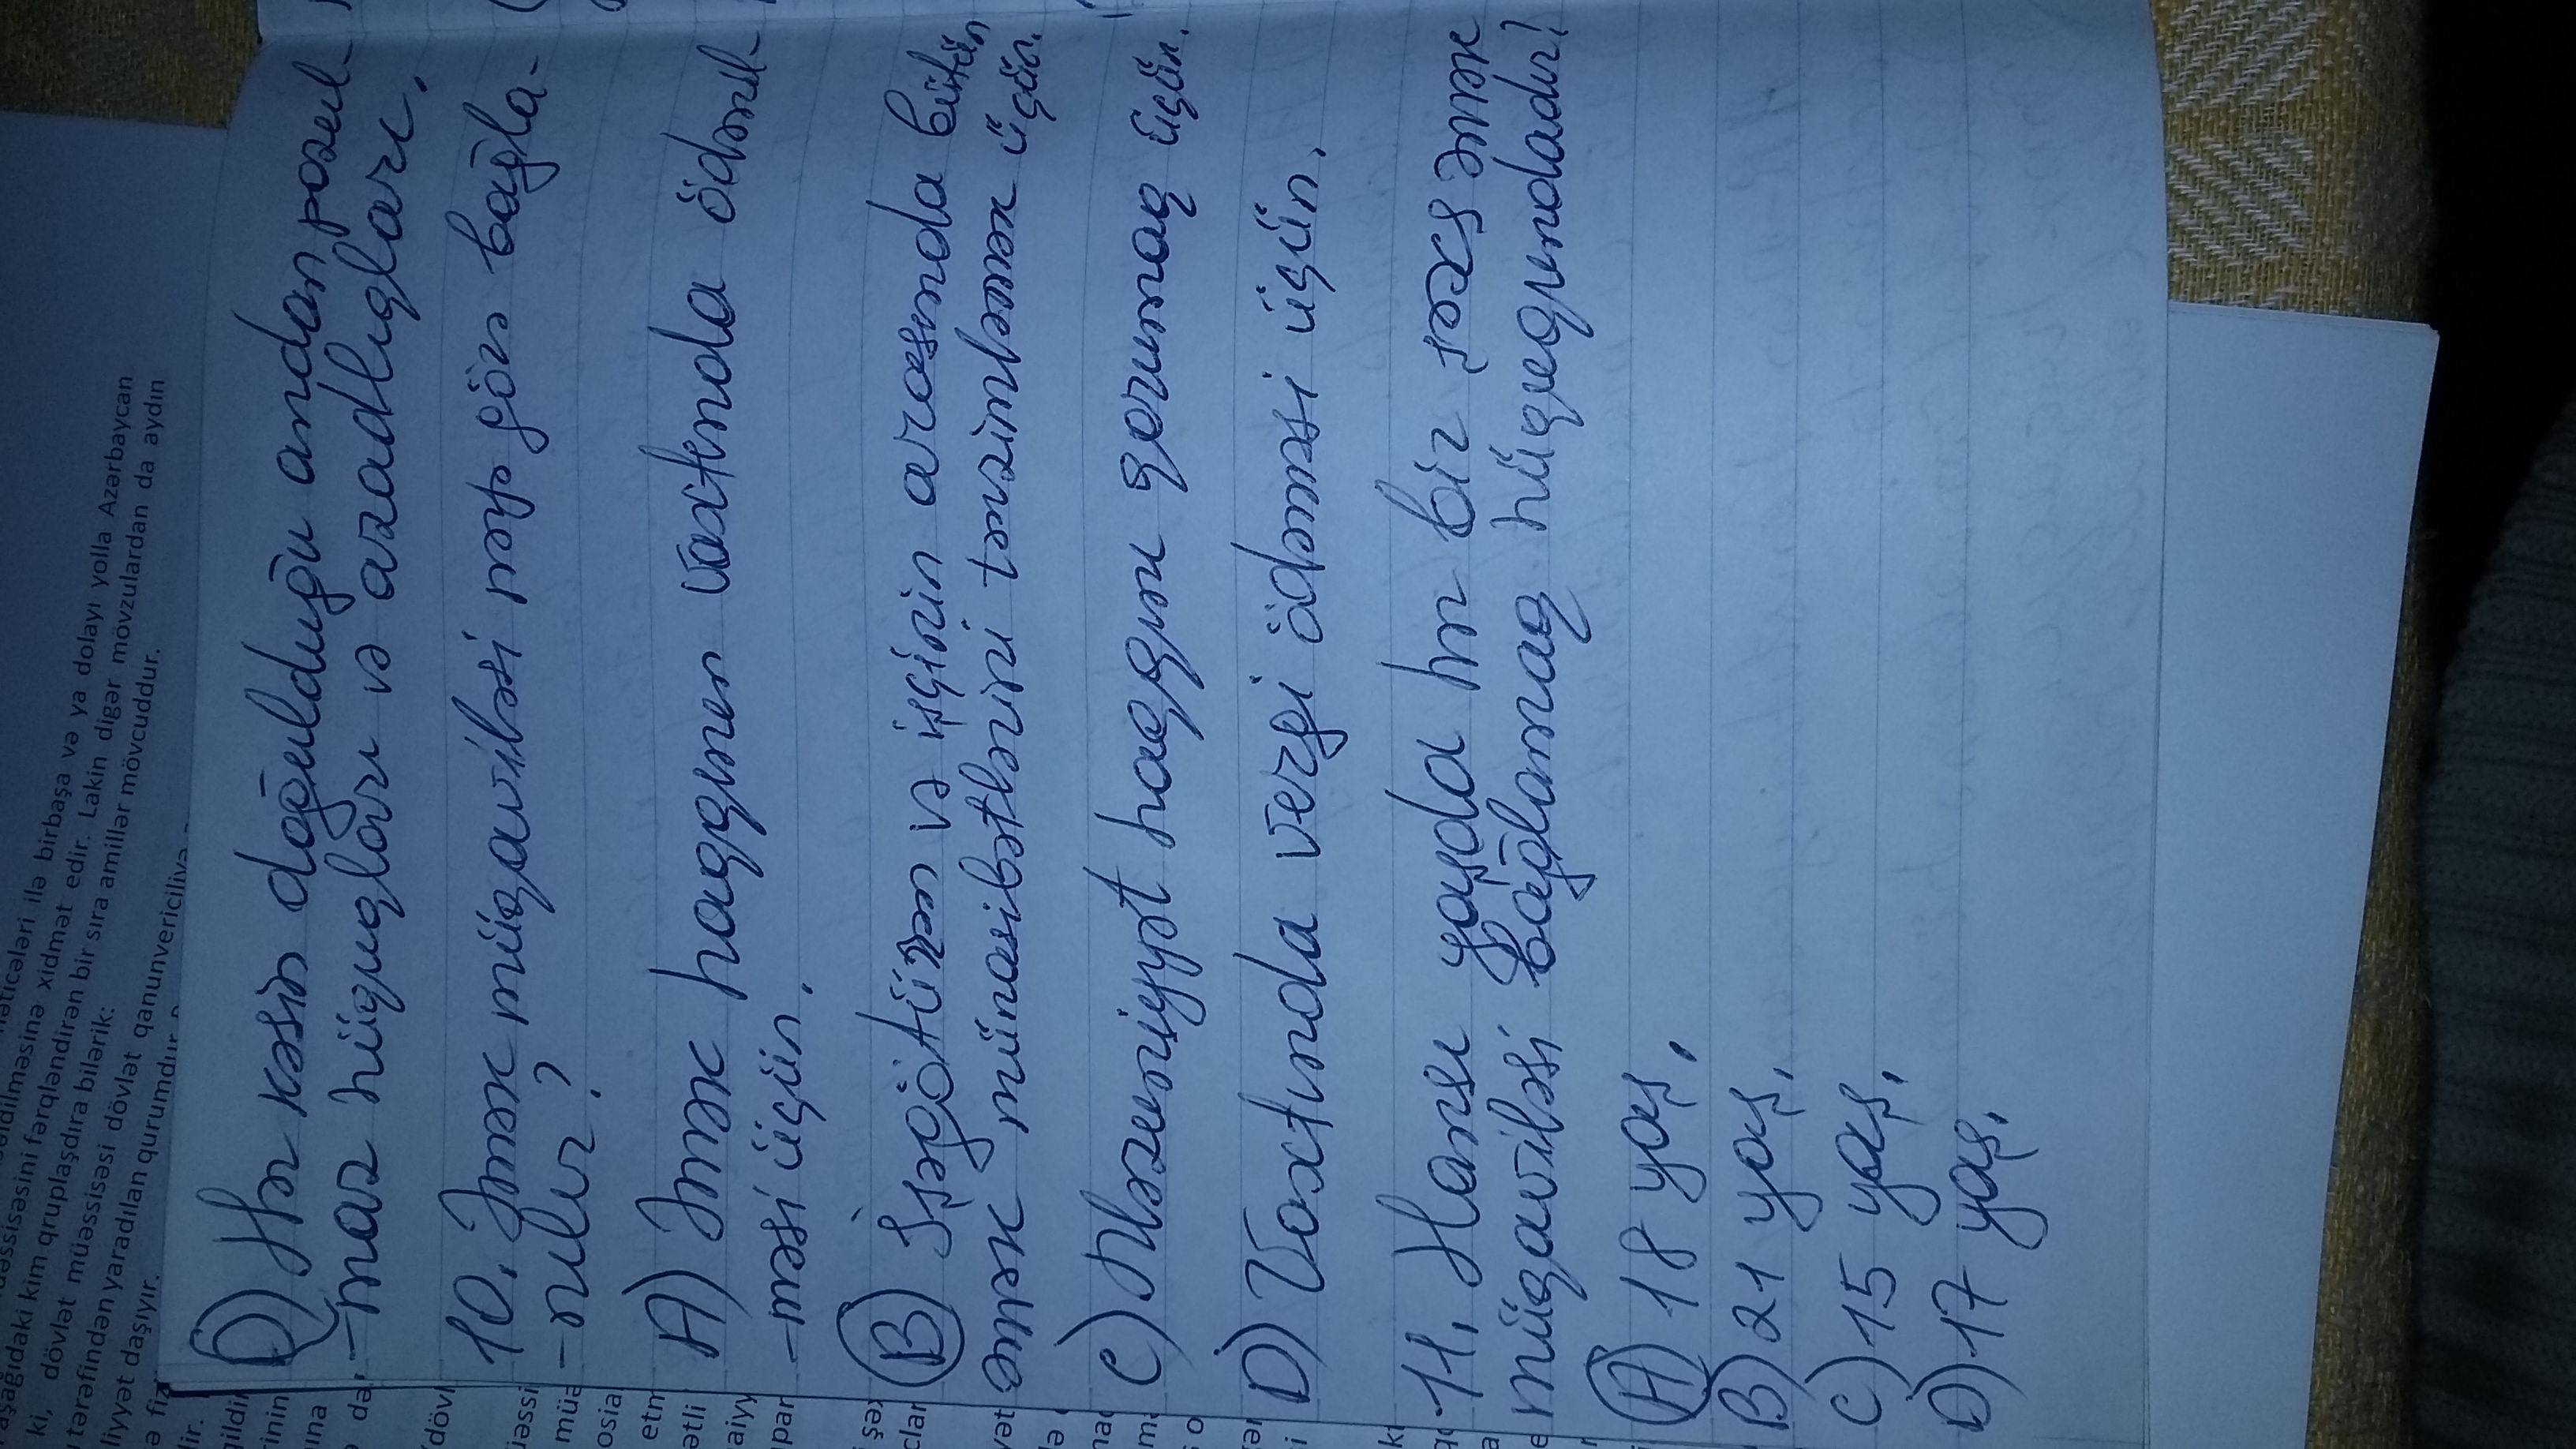 nəticələri ilə birbaşa və ya dolayı yolla Azərbaycan
xidmət edir. Lakin digər mövzulardan da aydın
müəssisəsini fərqləndirən bir sıra amillər mövcuddur.
aşağıdakı kim qruplaşdıra bilərik:
ki, dövlət müəssisəsi dövlət qanunvericiliyə
tərəfindən yaradılan qurumdur.
liyyət daşıyır.
D) Hər kəsin doğulduğu andan pozul-
-maz hüquqları və azadlıqları.
10. Əmək müqaviləsi nəyə görə bağla-
-nılır?
A) Əmək haqqının vaxtında ödənil-
-məsi üçün.
B) İşəgötürən və işçinin arasında bütün
əmək münasibətlərini tənzimləmək üçün.
C) Məzuniyyət haqqını qorumaq üçün.
D) Vaxtında vergi ödəməsi üçün.
11. Hansı yaşda hər bir şəxs əmək
müqaviləsi bağlamaq hüququndadır?
A) 18 yaş.
B) 21 yaş.
C) 15 yaş.
D) 17 yaş.